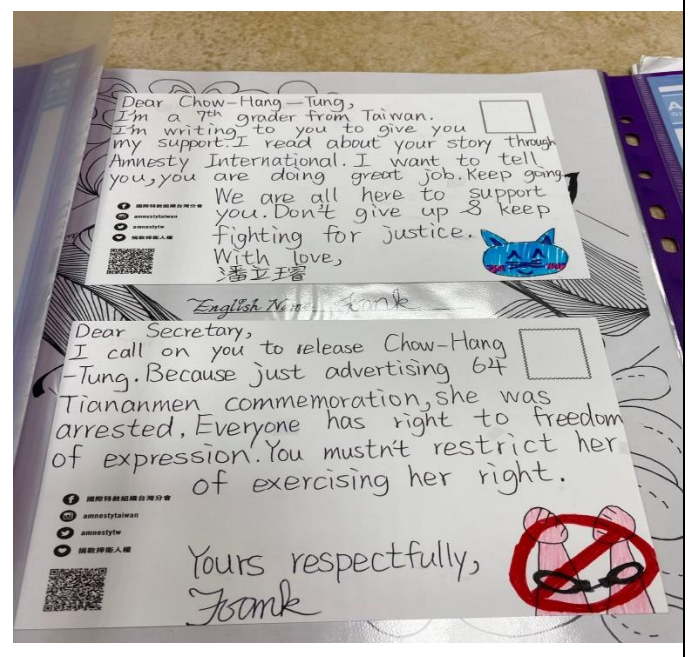 Dear Chow-Hang-Tung,
I'm a 7th grader from Taiwan.
I'm writing to you to give you
my support. I read about your story through
Amnesty International. I want to tell
you, you are doing great job. Keep going.
We are all here to support
you. Don't give up & keep
fighting for justice.
With love,
潘立璿
國際特赦組織台灣分會
amnestytaiwan
amnestytw
捐款捍衛人權
English Name: Frank
Dear Secretary,
I call on you to release Chow-Hang
-Tung. Because just advertising 64
Tiananmen commemoration, she was
arrested, Everyone has right to freedom
of expression. You mustn't restrict her
of exercising her right.
國際特赦組織台灣分會
amnestytaiwan
amnestytw
捐款捍衛人權
Yours respectfully,
Frank